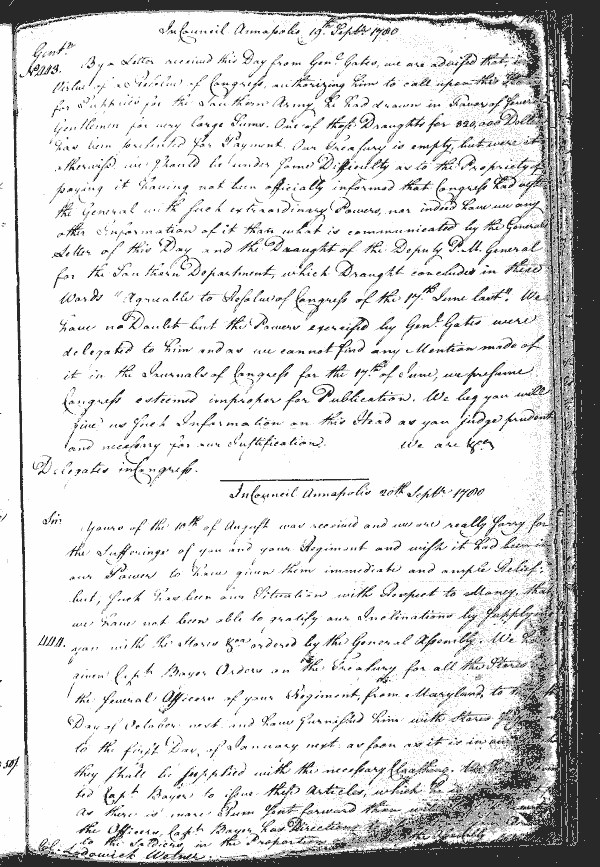 In Council Annapolis 19th Septr 1780
Gentn
No 443. By a Letter received this Day from Genl Gates, we are advised that, in
Virtue of a Resolve of Congress, authorizing him to call upon this State
for Supplies for the Southern Army, he had drawn in Favor of several
Gentlemen for very large Sums. One of those Draughts for 320,000 Dolls
has been presented for Payment. Our Treasury is empty, but were it
otherwise we should be under some Difficulty as to the Propriety of
paying it having not been officially informed that Congress had
the General with such extraordinary Powers, nor indeed have we any
other Information of it than what is communicated by the Generals
Letter of this Day and the Draught of the Deputy P. M. General
for the Southern Department, which Draught concludes in these
Words "Agreable to Resolve of Congress of the 17th June last". We
have no Doubt but the Powers exercised by Genl Gates were
delegated to him and as we cannot find any Mention made of
it in the Journals of Congress for the 17th of June, we presume
Congress esteemed improper for Publication. We beg you will
give us such Information on this Head as you judge prudent
and necessary for our Justification. We are &ca
Delegates in Congress.
In Council Annapolis 20th Septr 1780
Sir
Yours of the 10th of August was received and we are really sorry for
the Sufferings of you and your Regiment and wish it had been in
our Power to have given them immediate and ample Relief;
but, such has been our Situation with Respect to Money, that
we have not been able to gratify our Inclinations by supplying
444. you with the Stores &ca ordered by the General Assembly. We
given Capt Bayer Orders on the Treasury for all the Stores
the several Officers of your Regiment, from Maryland, to the
Day of October next and have furnished him with Stores
to the first Day of January next. as soon as it is in our
they shall be supplied with the necessary Cloathing.
Capt Bayer to issue these Articles, which
as there is more Rum sent forward than
the Officers, Capt Bayer has Directions
to the Soldiers in the Proportion
Col. Lodowick Weltner.